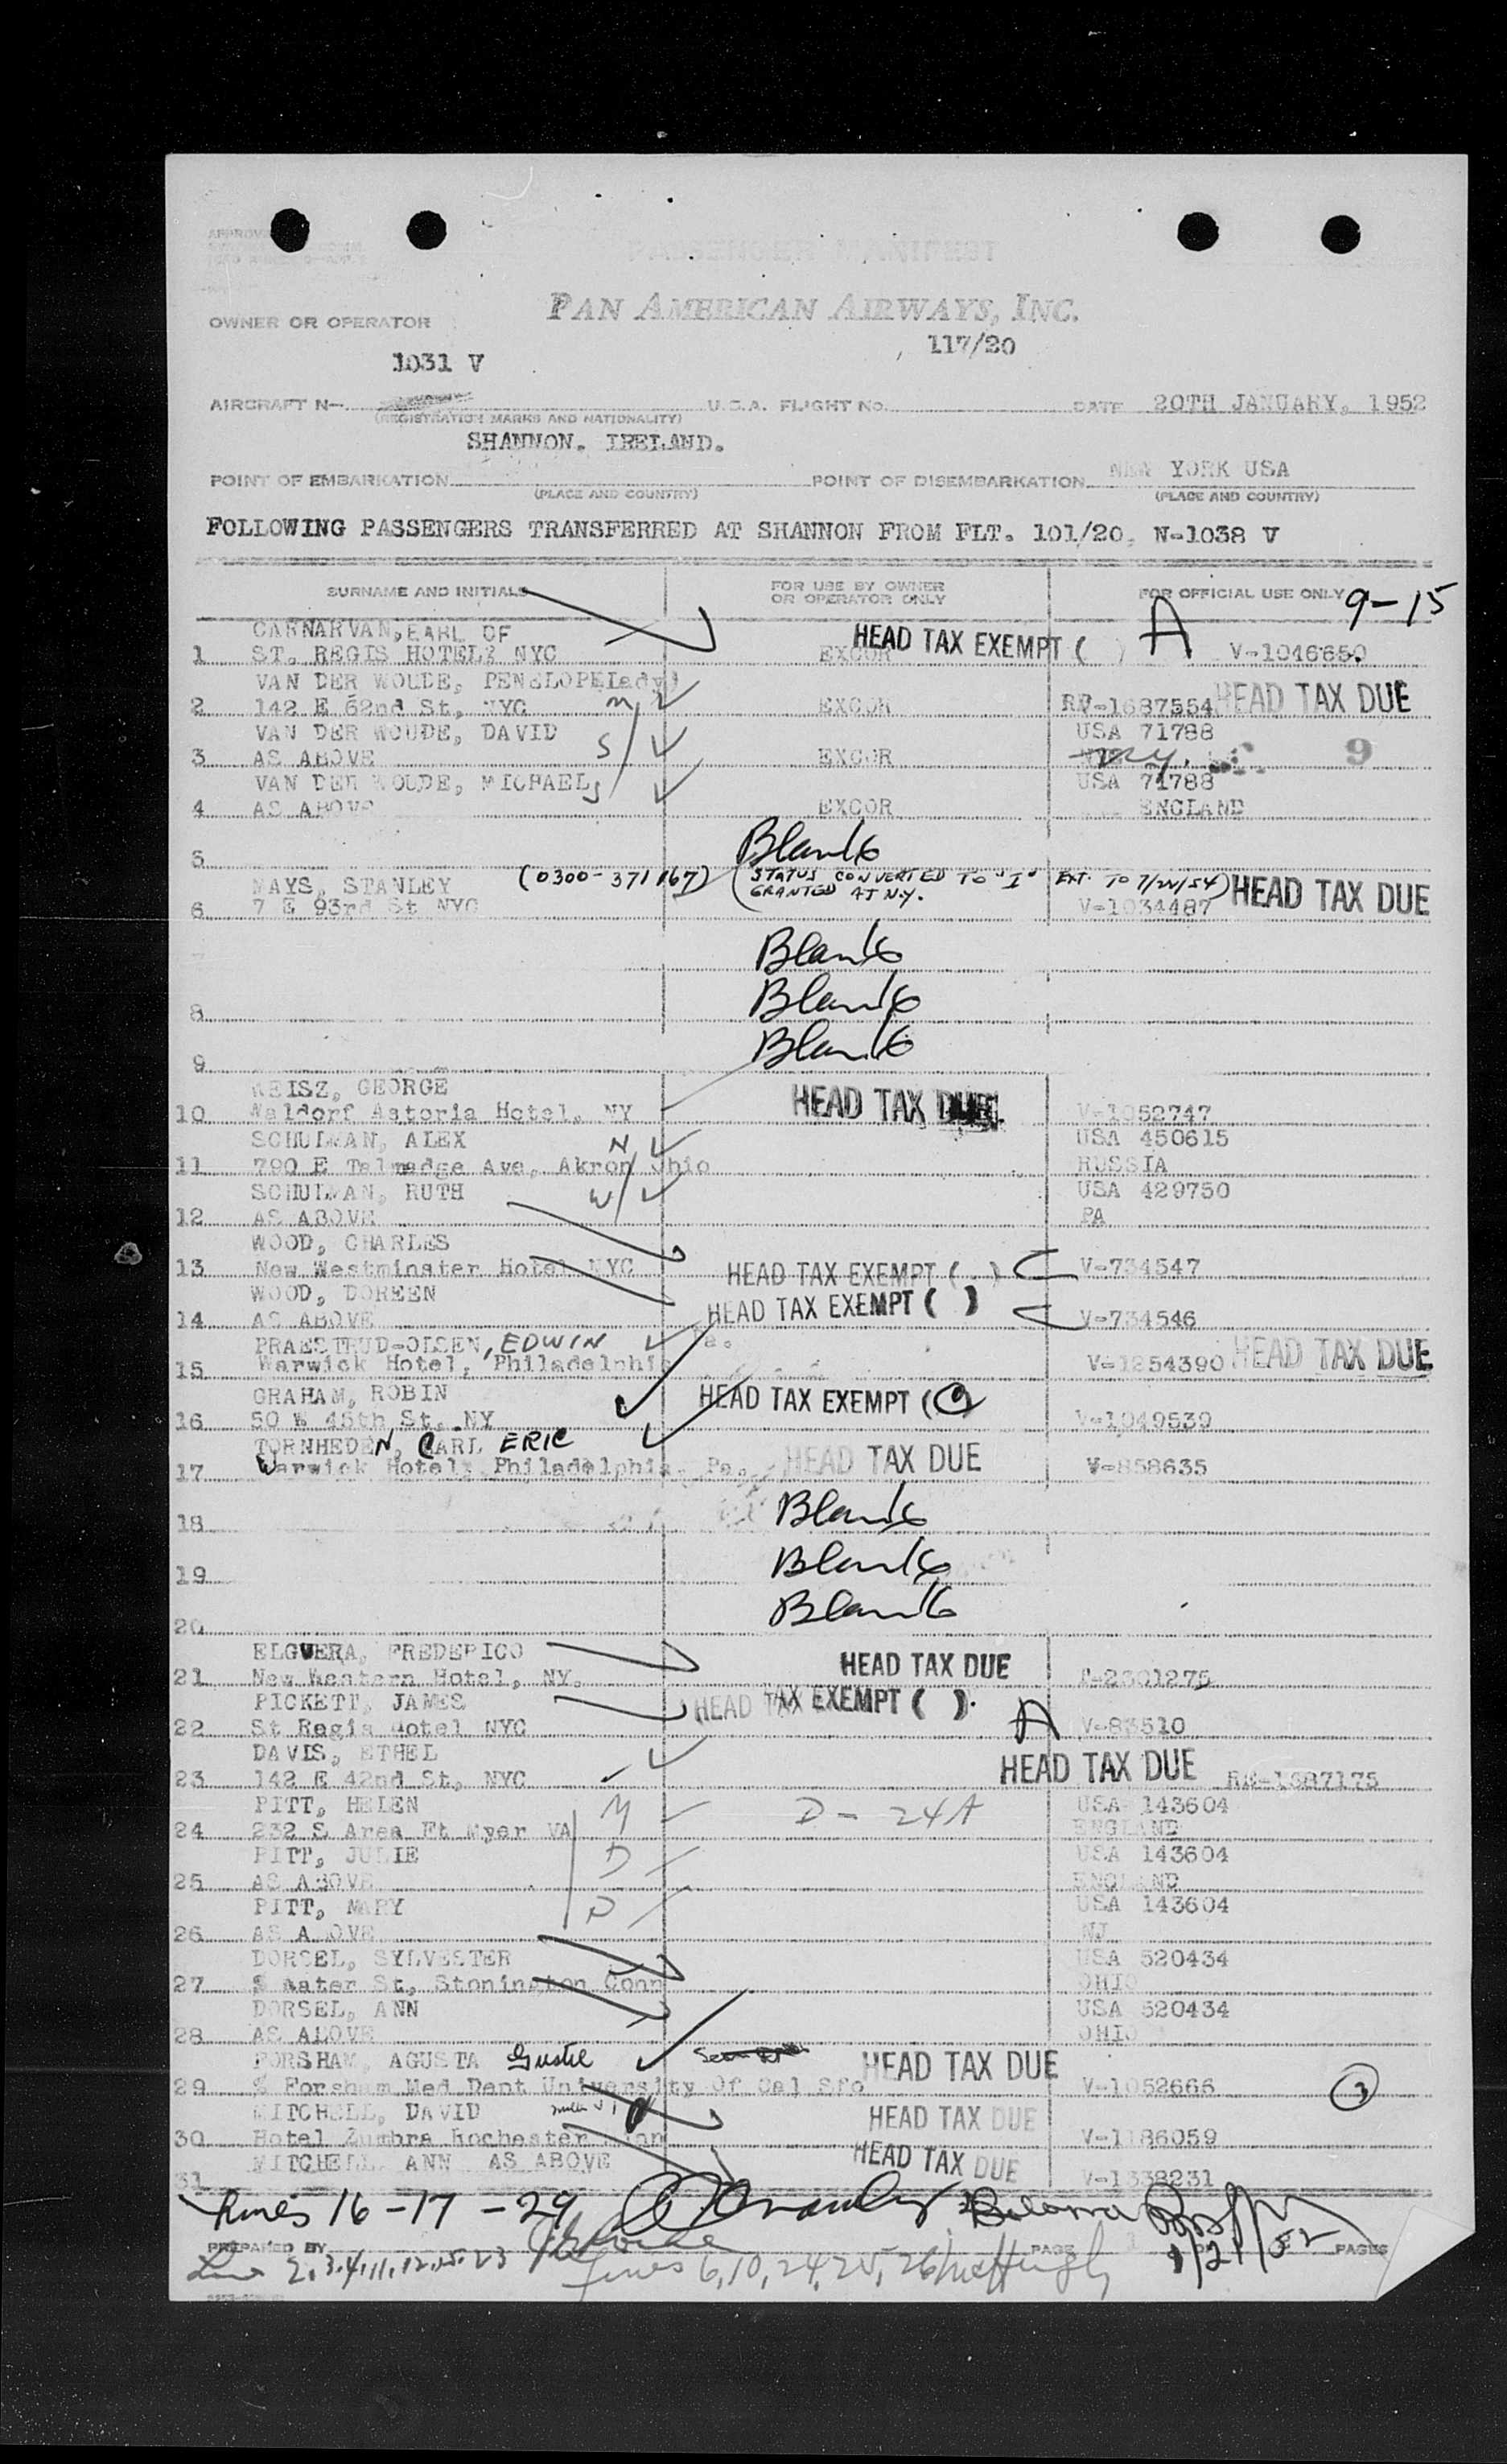 PASSENGER MANIFEST
OWNER OR OPERATOR
PAN AMERICAN AIRWAYS, INC.
117/20
1031 V
AIRCRAFT N—
(REGISTRATION MARKS AND NATIONALITY)
U.S.A. FLIGHT No.
DATE 20TH JANUARY, 1952
SHANNON. IRELAND.
POINT OF EMBARKATION
(PLACE AND COUNTRY)
POINT OF DISEMBARKATION NEW YORK USA
(PLACE AND COUNTRY)
FOLLOWING PASSENGERS TRANSFERRED AT SHANNON FROM FLT. 101/20, N-1038 V
SURNAME AND INITIALS
FOR USE BY OWNER OR OPERATOR ONLY
FOR OFFICIAL USE ONLY 9-15
CARNARVAN, EARL OF HEAD TAX EXEMPT ( ) A
1 ST. REGIS HOTEL, NYC EXCOR V-1046650
VAN DER WOUDE, PENELOPE(Lady) M HEAD TAX DUE
2 142 E 62nd St, NYC EXCOR RP-1687554
VAN DER WOUDE, DAVID S USA 71788
3 AS ABOVE EXCOR NY. 9
VAN DER WOUDE, MICHAEL S USA 71788
4 AS ABOVE EXCOR ENGLAND
5 Blank
MAYS, STANLEY (0300-371167) (STATUS CONVERTED TO "I" EXT. TO 7/20/54) HEAD TAX DUE
GRANTED AT N.Y.
6 7 E 93rd St NYC V-1034487
7 Blank
8 Blank
9 Blank
WEISZ, GEORGE
10 Waldorf Astoria Hotel, NY HEAD TAX DUE V-1052747
SCHULMAN, ALEX H USA 450615
11 790 E Talmadge Ave, Akron Ohio RUSSIA
SCHULMAN, RUTH W USA 429750
12 AS ABOVE PA
WOOD, CHARLES
13 New Westminster Hotel NYC HEAD TAX EXEMPT ( ) V-734547
WOOD, DOREEN
14 AS ABOVE HEAD TAX EXEMPT ( ) V-734546
PRAESTRUD-OLSEN, EDWIN Pa.
15 Warwick Hotel, Philadelphia V-1254390 HEAD TAX DUE
GRAHAM, ROBIN
16 50 W 45th St, NY HEAD TAX EXEMPT ( ) V-1049539
TORNHEDEN, CARL ERIC
17 Warwick Hotel, Philadelphia, Pa. HEAD TAX DUE V-858635
18 Blank
19 Blank
20 Blank
ELGUERA, FREDERICO
21 New Western Hotel, NY. HEAD TAX DUE T-2301275
PICKETT, JAMES HEAD TAX EXEMPT ( )
22 St Regis Hotel NYC A V-83510
DAVIS, ETHEL
23 142 E 42nd St, NYC HEAD TAX DUE RE-1687175
PITT, HELEN M D-24A USA 143604
24 232 S Area Ft Myer VA ENGLAND
PITT, JULIE D USA 143604
25 AS ABOVE ENGLAND
PITT, MARY D USA 143604
26 AS ABOVE NJ
DORSEL, SYLVESTER USA 520434
27 Water St, Stonington Conn OHIO
DORSEL, ANN USA 520434
28 AS ABOVE OHIO
FORSHAM, AGUSTA Gustel HEAD TAX DUE
29 % Forsham Med Dent University Of Cal Sfo V-1052666 3
MITCHELL, DAVID HEAD TAX DUE
30 Hotel Zumbra Rochester Minn V-1186059
31 MITCHELL, ANN AS ABOVE HEAD TAX DUE V-1338231
Lines 16-17-29
PREPARED BY
PAGE 1 OF PAGES
1/21/52
Line 2,3,4,11,12,15,23
Lines 6,10,24,25,26